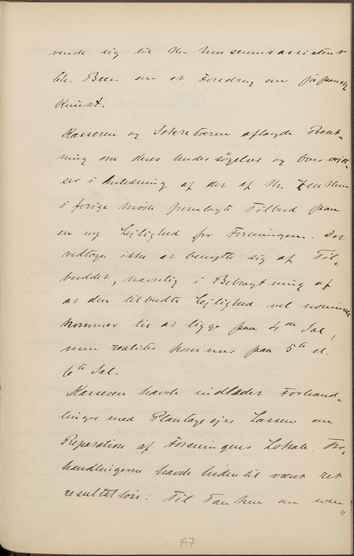 vende sig til Hr. Museumsassistent
Chr. Been om et Foredrag om japansk
Kunst.
Kassereren og Sekretæren aflagde Beret-
ning om deres Undersøgelser og Overvejel-
ser i Anledning af det af Hr. Zeuthen
i forrige Møde fremlagte Tilbud paa
en ny Lejlighed for Foreningen. Det
vedtoges ikke at benytte sig af Til-
buddet, navnlig i Betragtning af
at den tilbudte Lejlighed vel nominelt
kommer til at ligge paa 4de Sal,
men realiter kommer paa 5te el.
6te Sal.
Kassereren havde indledet Forhand-
linger med Plantageejer Lassen om
Reparation af Foreningens Lokale. For-
handlingerne havde hidentil været ret
resultatløse. Til Tanken om
77